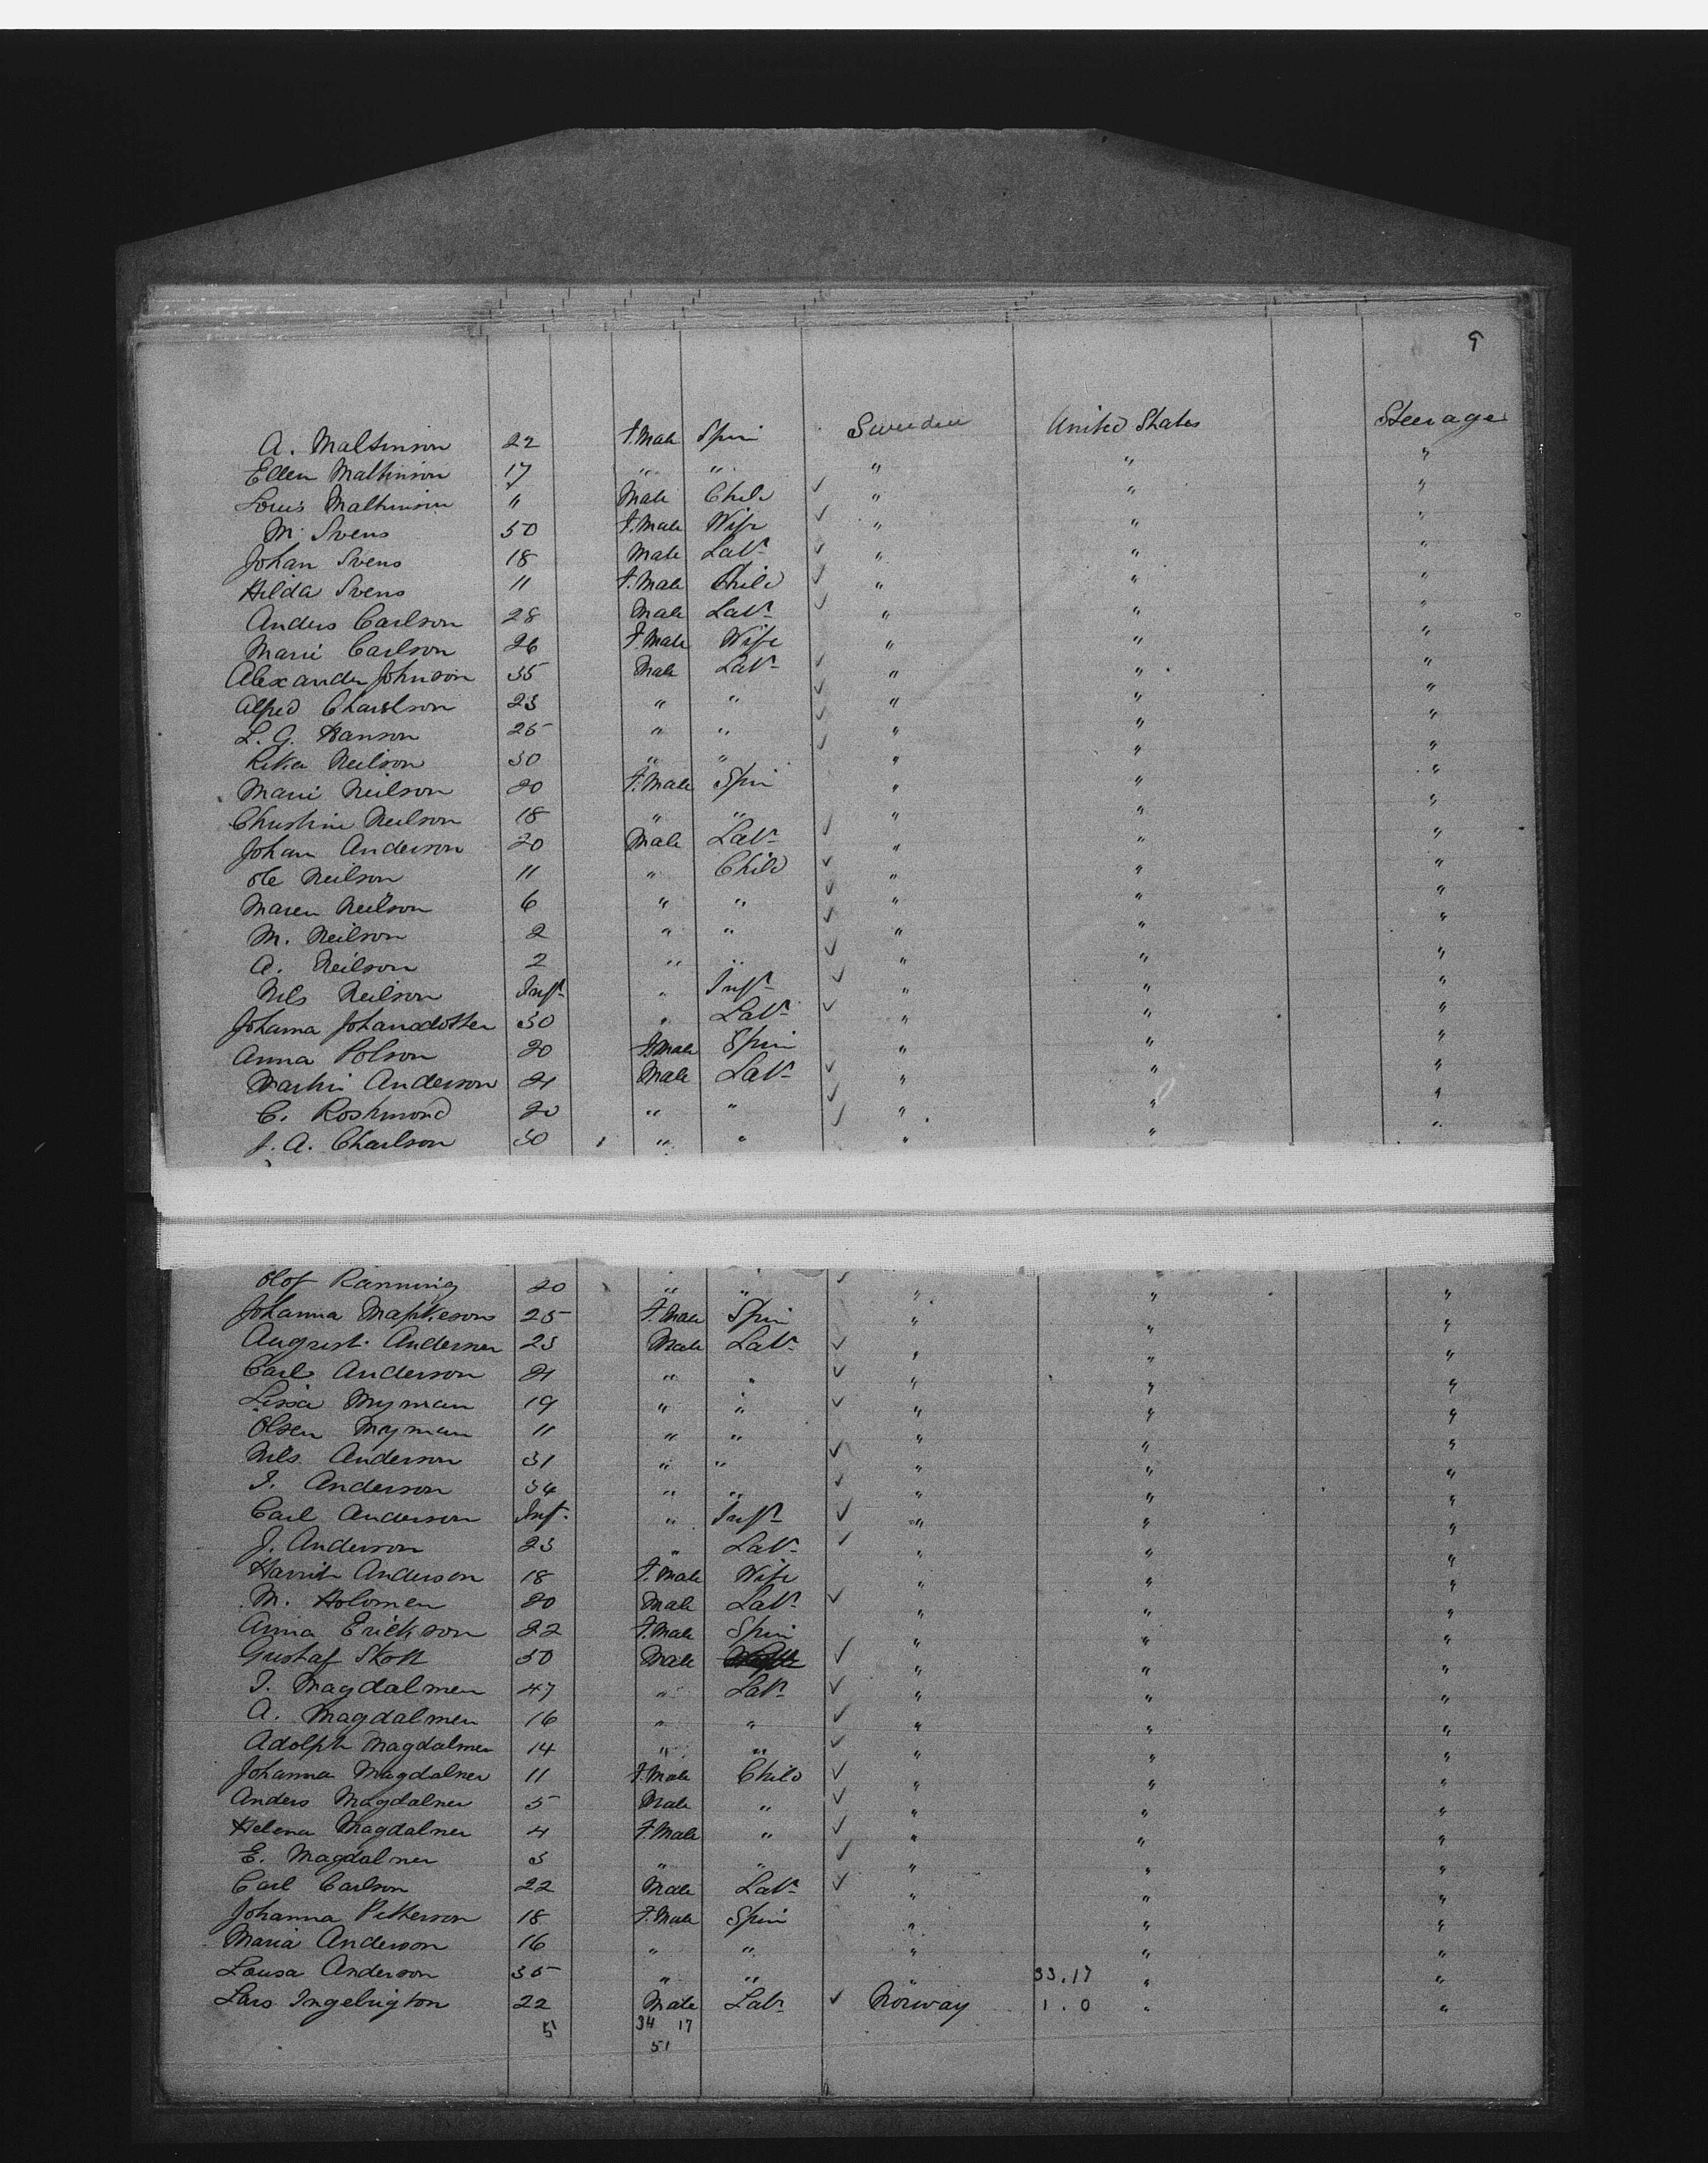 9
A. Maltinson 22 F.Male Spin Sweden United States Steerage
Ellen Maltinson 17 " " " " "
Louis Maltinson " Male Child ✓ " " "
M. Svens 50 F.Male Wife ✓ " " "
Johan Svens 18 Male Labr ✓ " " "
Hilda Svens 11 F.Male Child ✓ " " "
Anders Carlson 28 Male Labr ✓ " " "
Marie Carlson 26 F.Male Wife " " "
Alexander Johnson 35 Male Labr ✓ " " "
Alfred Charlson 23 " " ✓ " " "
L. G. Hanson 25 " " ✓ " " "
Rika Neilson 30 " " ✓ " " "
Marie Neilson 20 F.Male Spin " " "
Christine Neilson 18 " " " " "
Johan Anderson 20 Male Labr ✓ " " "
Ole Neilson 11 " Child ✓ " " "
Maren Neilson 6 " " ✓ " " "
M. Neilson 2 " " ✓ " " "
A. Neilson 2 " " ✓ " " "
Nils Neilson Inft " Inft ✓ " " "
Johanna Johansdotter 30 " Labr ✓ " " "
Anna Polson 20 F.Male Spin " " "
Martin Anderson 21 Male Labr ✓ " " "
C. Roshmond 20 " " ✓ " " "
J. A. Charlson 30 " " ✓ " " "
Olof Ranning 20 " " ✓ " " "
Johanna 25 F.Male Spin " " "
August Anderson 23 Male Labr ✓ " " "
Carl Anderson 21 " " ✓ " " "
Lissa Myman 19 " " ✓ " " "
Olsen Myman 11 " " " " "
Nils Anderson 31 " " ✓ " " "
I. Anderson 34 " " ✓ " " "
Carl Anderson Inf. " Inft ✓ " " "
J. Anderson 23 " Labr ✓ " " "
Harrit Anderson 18 F.Male Wife " " "
M. Holomen 20 Male Labr ✓ " " "
Anna Erickson 22 F.Male Spin " " "
Gustaf Skott 50 Male ✓ " " "
I. Magdalmen 47 " Labr ✓ " " "
A. Magdalmen 16 " " ✓ " " "
Adolph Magdalmen 14 " " ✓ " " "
Johanna Magdalner 11 F.Male Child ✓ " " "
Anders Magdalner 5 Male " ✓ " " "
Helena Magdalner 4 F.Male " ✓ " " "
E. Magdalner 3 " " ✓ " " "
Carl Carlson 22 Male Labr ✓ " " "
Johanna Petterson 18 F.Male Spin " " "
Maria Anderson 16 " " " " "
Lousa Anderson 35 " " 33.17 " "
Lars Ingebrigton 22 Male Labr ✓ Norway 1.0 " "
5 34 17
51